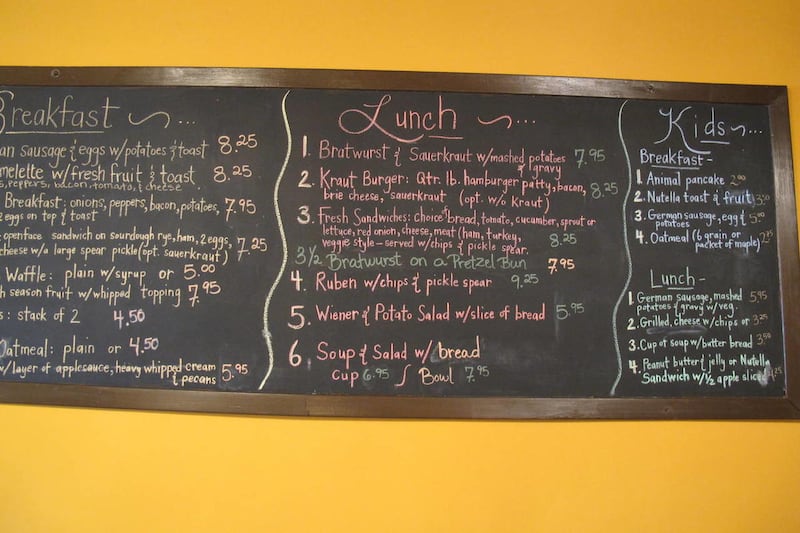 Breakfast ~ ...
an Sausage & eggs w/potatoes & toast 8.25
melette w/fresh fruit & toast 8.25
s, peppers, bacon, tomato, & cheese
Breakfast: onions, peppers, bacon, potatoes, 7.95
2 eggs on top & toast
openface sandwich on sourdough rye, ham, 2 eggs, 7.25
cheese w/a large spear pickle (opt. sauerkraut)
Waffle: plain w/syrup or 5.00
h season fruit w/whipped topping 7.95
s: stack of 2 4.50
Oatmeal: plain or 4.50
w/layer of applesauce, heavy whipped cream
& pecans 5.95
Lunch ~ ...
1. Bratwurst & Sauerkraut w/mashed potatoes 7.95
& gravy
2. Kraut Burger: Qtr. lb. hamburger patty, bacon, 8.25
brie cheese, sauerkraut (opt. w/o kraut)
3. Fresh Sandwiches: choice of bread, tomato, cucumber, sprout or
lettuce, red onion, cheese, meat (ham, turkey,
veggie style - served w/chips & pickle spear. 8.25
3 1/2 Bratwurst on a Pretzel Bun 7.95
4. Ruben w/chips & pickle spear 9.25
5. Wiener & Potato Salad w/slice of bread 5.95
6. Soup & Salad w/ bread
Cup 6.95 / Bowl 7.95
Kids ~ ...
Breakfast -
1. Animal pancake 2.00
2. Nutella toast & fruit 3.50
3. German sausage, egg & 5.00
potatoes
4. Oatmeal (6 grain or 2.25
packet of maple)
Lunch -
1. German sausage, mashed 5.95
potatoes & gravy w/veg.
2. Grilled, cheese w/chips or 3.25
3. Cup of soup w/butter bread 3.50
4. Peanut butter & jelly or Nutella
Sandwich w/1/2 apple sliced .25